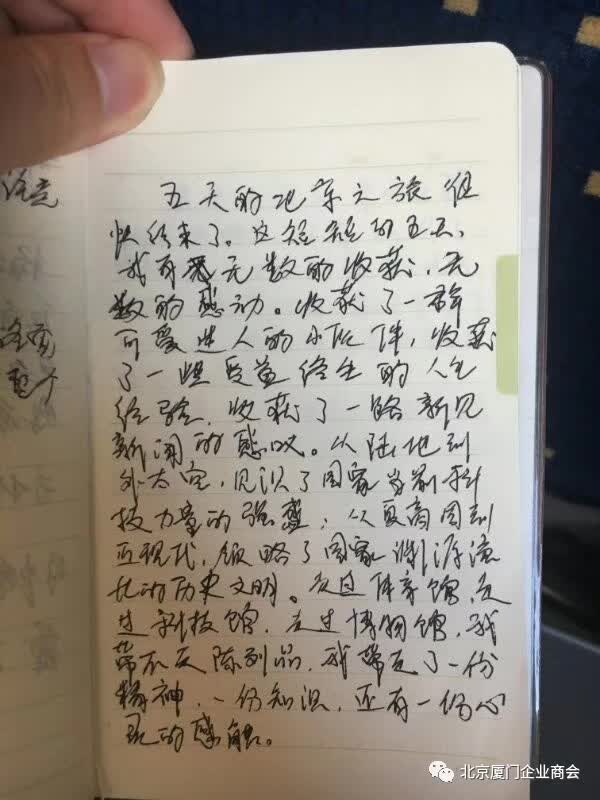 五天的北京之旅很
快结束了。这短短的五天,
我有无数的收获,无
数的感动。收获了一群
可爱迷人的小伙伴,收获
了一些受益终生的人生
经验,收获了一路新见
新闻的感叹。从陆地到
外太空,见识了国家当前科
技力量的强盛;从夏商周到
近现代,领略了国家渊源流
长的历史文明。走过体育馆,走
过科技馆,走过博物馆,我
带不走陈列品,我带走了一份
精神,一份知识,还有一份心
灵的感触。
整个
北京厦门企业商会